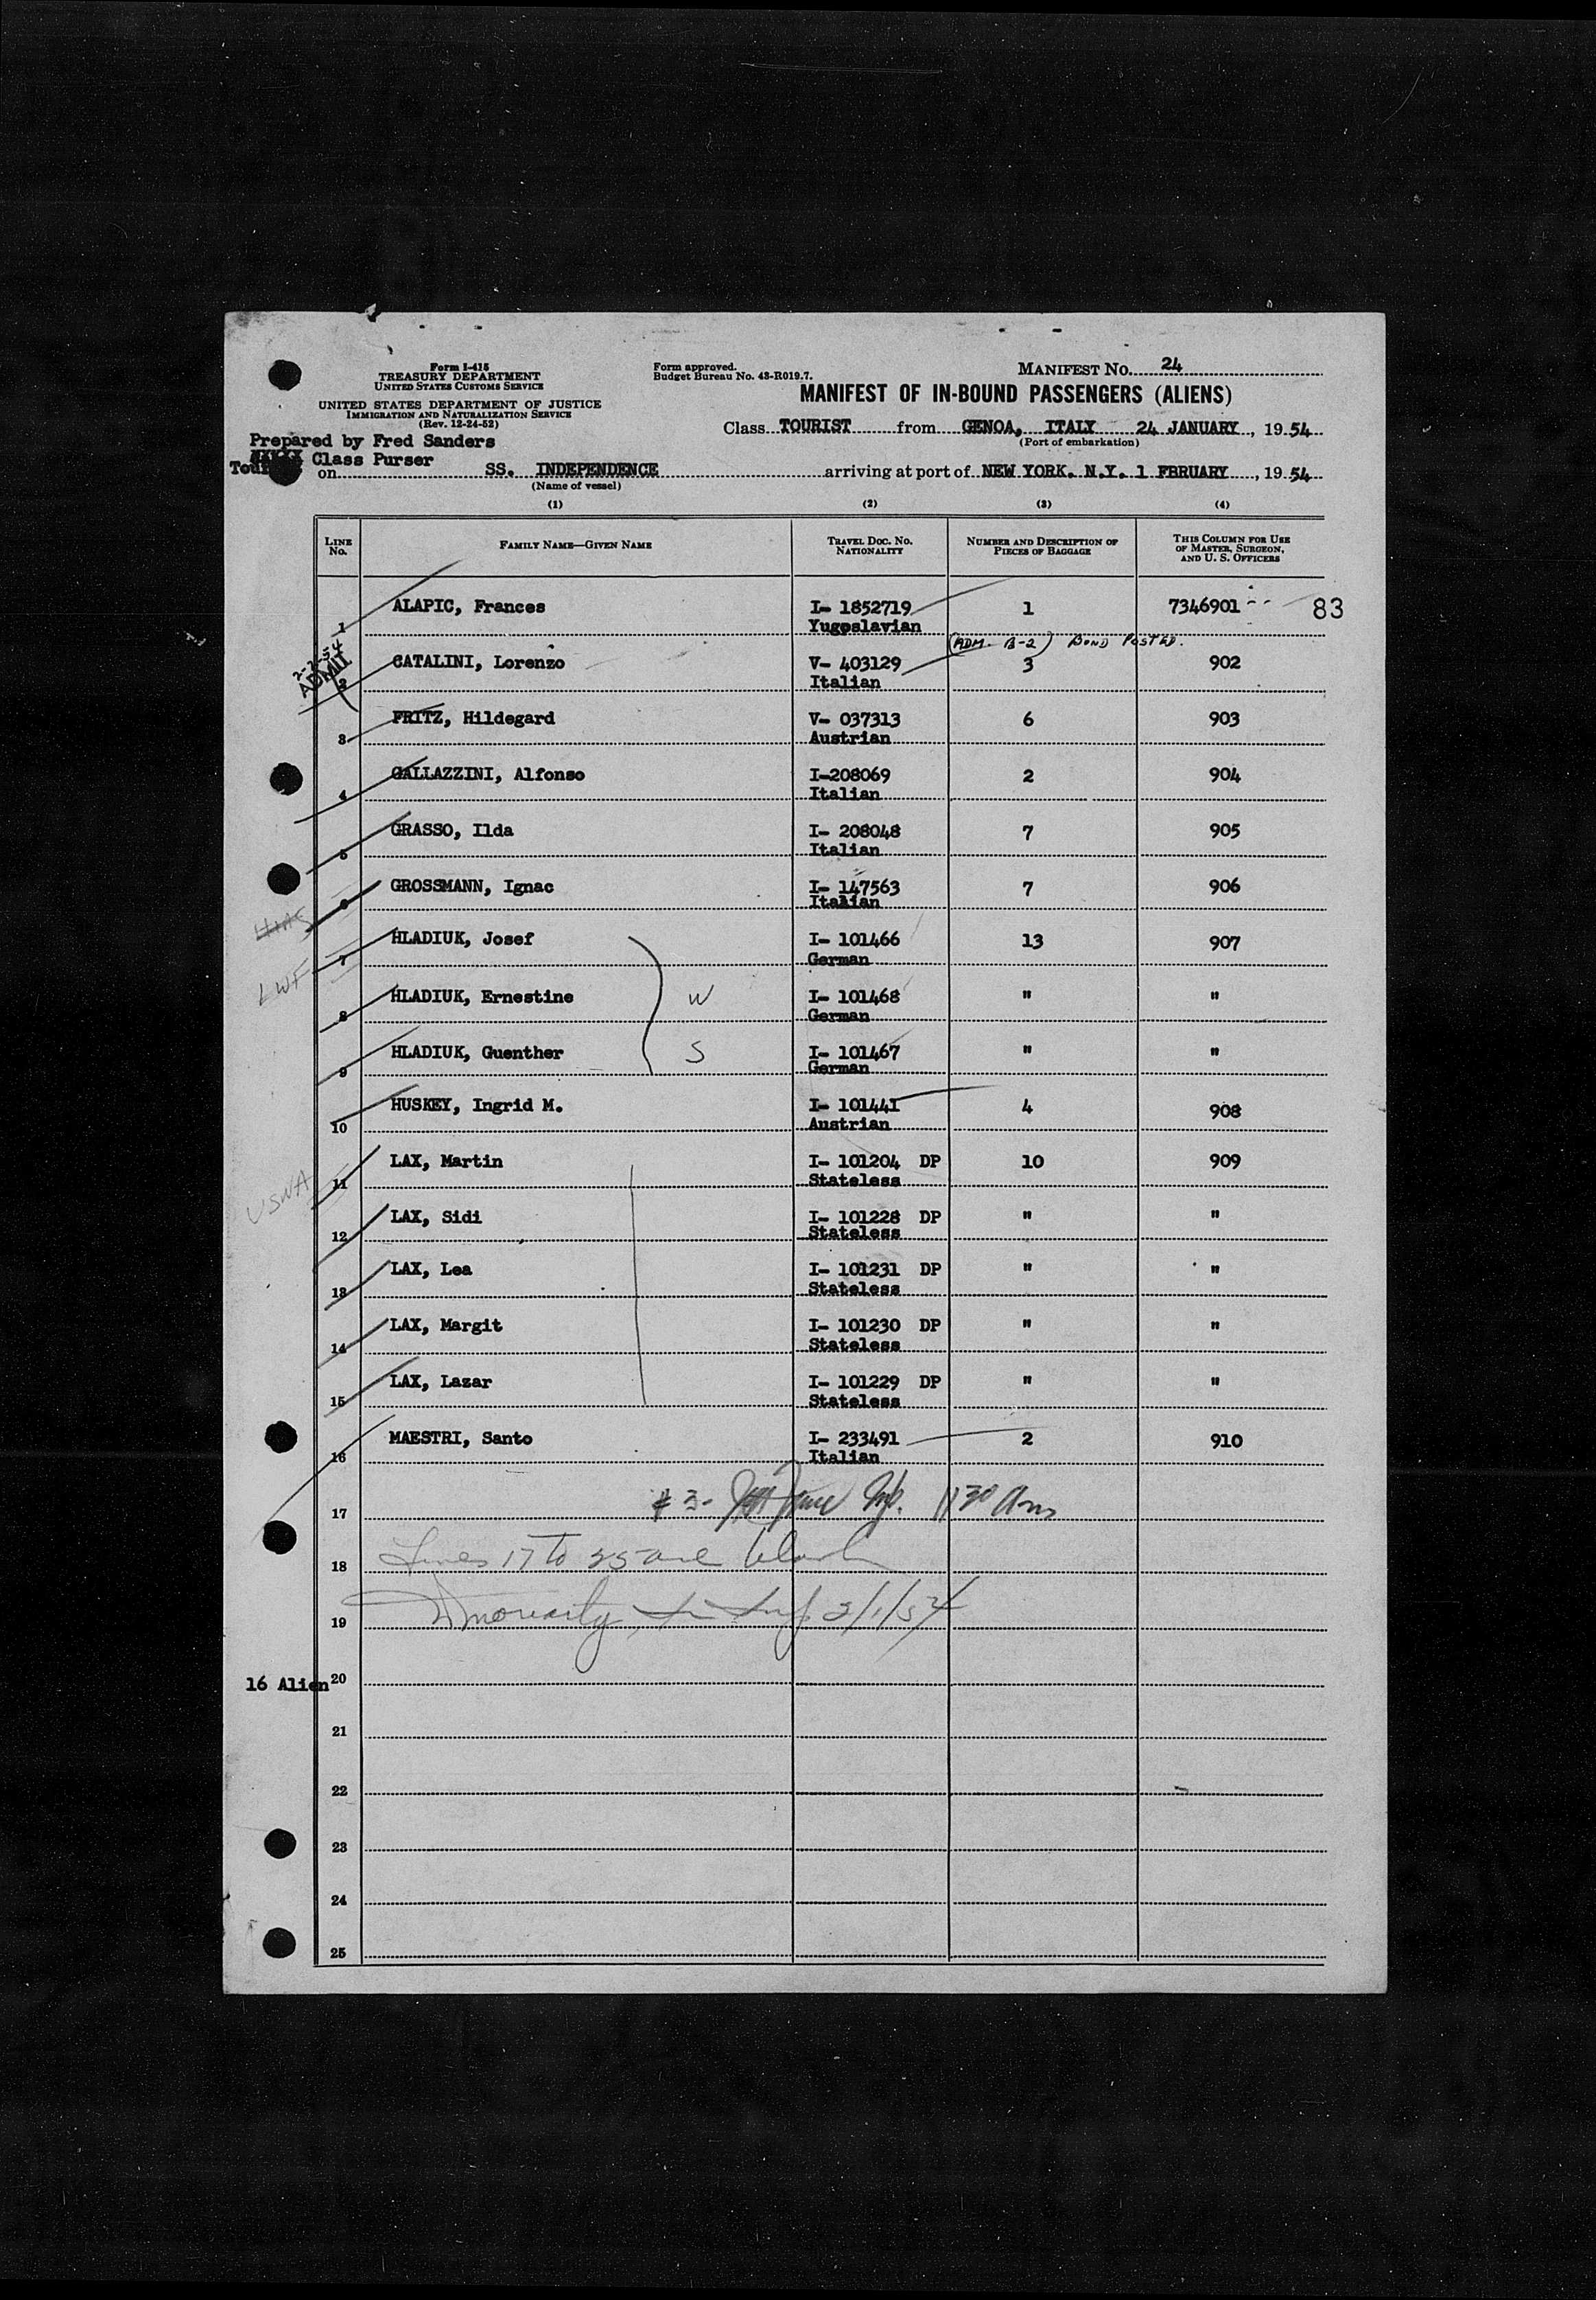 Form I-415
TREASURY DEPARTMENT
UNITED STATES CUSTOMS SERVICE
UNITED STATES DEPARTMENT OF JUSTICE
IMMIGRATION AND NATURALIZATION SERVICE
(Rev. 12-24-52)
Form approved.
Budget Bureau No. 43-R019.7.
MANIFEST NO. 24
MANIFEST OF IN-BOUND PASSENGERS (ALIENS)
Class TOURIST from GENOA, ITALY 24 JANUARY, 1954
(Port of embarkation)
Prepared by Fred Sanders
Class Purser
on SS. INDEPENDENCE arriving at port of NEW YORK. N.Y. 1 FBRUARY, 1954
(Name of vessel)
(1) (2) (3) (4)
LINE NO. FAMILY NAME—GIVEN NAME TRAVEL DOC. NO. NATIONALITY NUMBER AND DESCRIPTION OF PIECES OF BAGGAGE THIS COLUMN FOR USE OF MASTER, SURGEON, AND U. S. OFFICERS
1 ALAPIC, Frances I- 1852719 1 7346901 83
Yugoslavian
(ADM. B-2) BOND POSTED.
2-2-54
ADMIT
2 CATALINI, Lorenzo V- 403129 3 902
Italian
3 FRITZ, Hildegard V- 037313 6 903
Austrian
4 GALLAZZINI, Alfonso I-208069 2 904
Italian
5 GRASSO, Ilda I- 208048 7 905
Italian
6 GROSSMANN, Ignac I- 147563 7 906
Italian
7 HLADIUK, Josef I- 101466 13 907
German
LWF
8 HLADIUK, Ernestine W I- 101468 " "
German
9 HLADIUK, Guenther S I- 101467 " "
German
10 HUSKEY, Ingrid M. I- 101441 4 908
Austrian
11 LAX, Martin I- 101204 DP 10 909
Stateless
USNA
12 LAX, Sidi I- 101228 DP " "
Stateless
13 LAX, Lea I- 101231 DP " "
Stateless
14 LAX, Margit I- 101230 DP " "
Stateless
15 LAX, Lazar I- 101229 DP " "
Stateless
16 MAESTRI, Santo I- 233491 2 910
Italian
17 # 3- 1130 Am
18 Lines 17 to 25 are blank
19 2/1/54
16 Alien 20
21
22
23
24
25